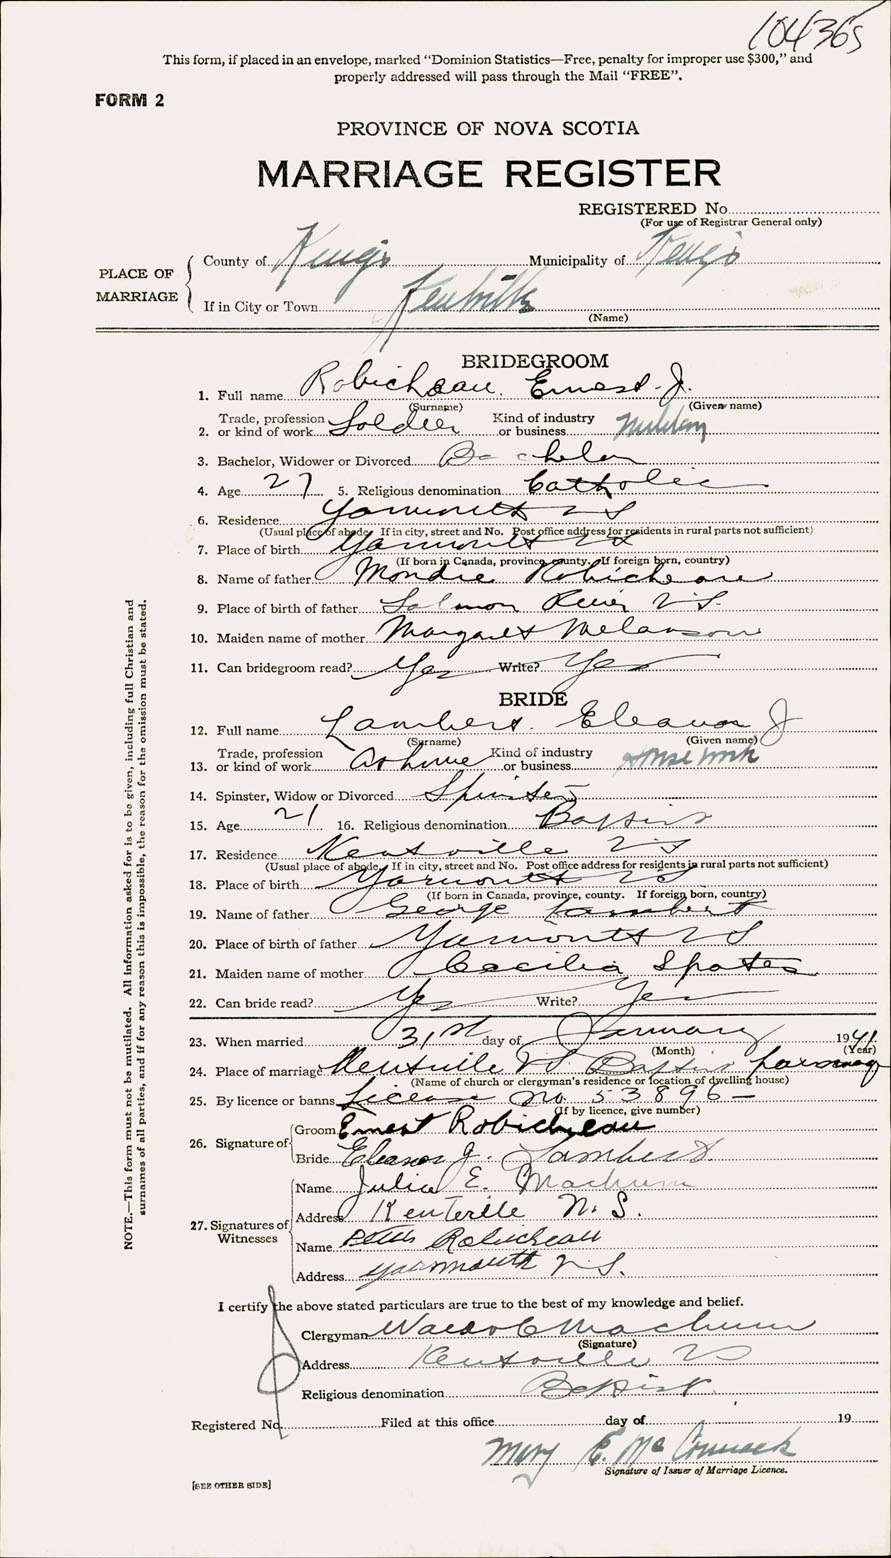 104365
This form, if placed in an envelope, marked “Dominion Statistics—Free, penalty for improper use $300,” and
properly addressed will pass through the Mail “FREE”.
FORM 2
PROVINCE OF NOVA SCOTIA
MARRIAGE REGISTER
REGISTERED No.
(For use of Registrar General only)
PLACE OF MARRIAGE
County of Kings Municipality of Kings
If in City or Town Kentville
(Name)
BRIDEGROOM
1. Full name Robicheau. Ernest. J.
(Surname) (Given name)
2. Trade, profession or kind of work Soldier Kind of industry or business Military
3. Bachelor, Widower or Divorced Bachelor
4. Age 27 5. Religious denomination Catholic
6. Residence Yarmouth NS
(Usual place of abode. If in city, street and No. Post office address for residents in rural parts not sufficient)
7. Place of birth Yarmouth NS
(If born in Canada, province, county. If foreign born, country)
8. Name of father Robicheau
9. Place of birth of father Salmon River N.S.
10. Maiden name of mother Margaret Melanson
11. Can bridegroom read? Yes Write? Yes
BRIDE
12. Full name Lambert. Eleanor J
(Surname) (Given name)
13. Trade, profession or kind of work At home Kind of industry or business House work
14. Spinster, Widow or Divorced Spinster
15. Age 21 16. Religious denomination Baptist
17. Residence Kentville N.S
(Usual place of abode. If in city, street and No. Post office address for residents in rural parts not sufficient)
18. Place of birth Yarmouth NS
(If born in Canada, province, county. If foreign born, country)
19. Name of father George Lambert
20. Place of birth of father Yarmouth NS
21. Maiden name of mother Cecilia Spates
22. Can bride read? Yes Write? Yes
23. When married 31st day of January 1941
(Month) (Year)
24. Place of marriage Kentville NS Baptist parsonage
(Name of church or clergyman's residence or location of dwelling house)
25. By licence or banns License No. 53896—
(If by licence, give number)
26. Signature of Groom Ernest Robicheau
Bride Eleanor J. Lambert.
27. Signatures of Witnesses
Name Julia E. Machum
Address Kentville N. S.
Name Robicheau
Address Yarmouth N.S.
I certify the above stated particulars are true to the best of my knowledge and belief.
Clergyman Machum
(Signature)
Address Kentville NS
Religious denomination Baptist
Registered No. Filed at this office day of 19
Mary E. McCormack
Signature of Issuer of Marriage Licence.
[SEE OTHER SIDE]
NOTE.—This form must not be mutilated. All information asked for is to be given, including full Christian and
surnames of all parties, and if for any reason this is impossible, the reason for the omission must be stated.